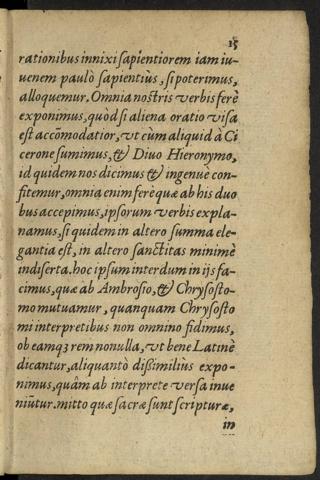 15
rationibus innixi sapientiorem iam iu-
uenem paulò sapientiùs, si poterimus,
alloquemur. Omnia nostris verbis ferè
exponimus, quòd si aliena oratio visa
est accõmodatior, vt cùm aliquid à Ci
cerone sumimus, & Diuo Hieronymo,
id quidem nos dicimus & ingenuè con-
fitemur, omnia enim ferè quæ ab his duo
bus accepimus, ipsorum verbis expla-
namus, si quidem in altero summa ele-
gantia est, in altero sanctitas minimè
indiserta. hoc ipsum interdum in ijs fa-
cimus, quæ ab Ambrosio, & Chrysosto-
mo mutuamur, quanquam Chrysosto
mi interpretibus non omnino fidimus,
ob eamq; rem nonnulla, vt bene Latinè
dicantur, aliquantò dißimiliùs expo-
nimus, quâm ab interprete versa inue
niũtur. mitto quæ sacræ sunt scripturæ,
in